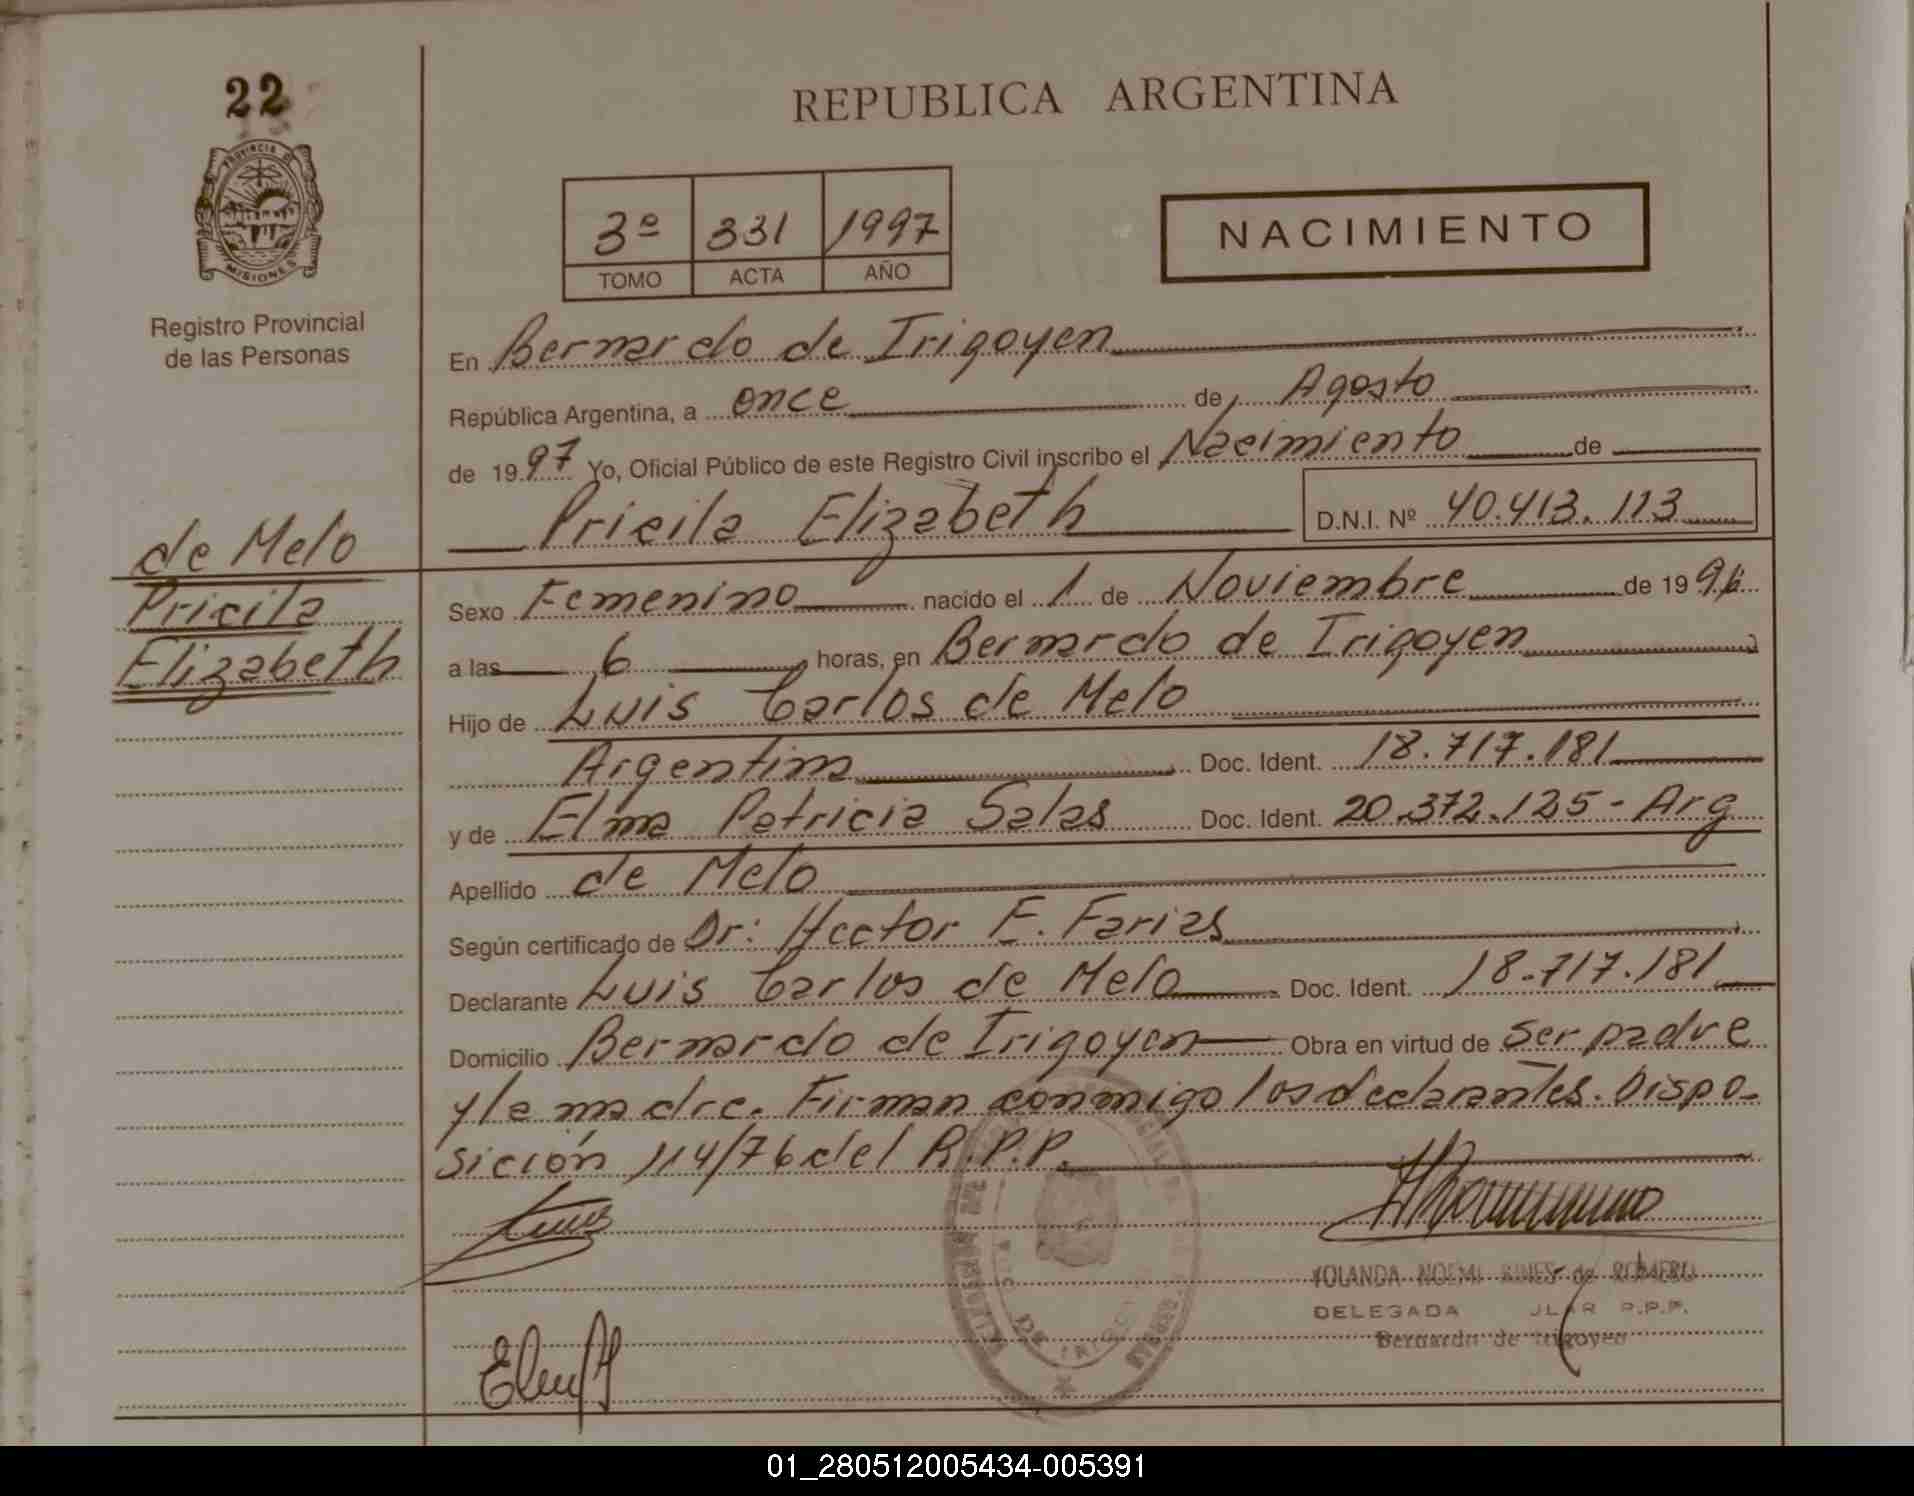 22
PROVINCIA DE
MISIONES
Registro Provincial
de las Personas
de Melo
Pricila
Elizabeth
REPUBLICA ARGENTINA
3º 331 1997
TOMO ACTA AÑO
NACIMIENTO
En Bernardo de Irigoyen
República Argentina, a once de Agosto
de 1997 Yo, Oficial Público de este Registro Civil inscribo el Nacimiento de
Pricila Elizabeth D.N.I. Nº 40.413.113
Sexo Femenino nacido el 1 de Noviembre de 1996
a las 6 horas, en Bernardo de Irigoyen
Hijo de Luis Carlos de Melo
Argentina Doc. Ident. 18.717.181
y de Elma Patricia Salas Doc. Ident. 20.372.125 - Arg
Apellido de Melo
Según certificado de Dr: Hector E. Farias
Declarante Luis Carlos de Melo Doc. Ident. 18.717.181
Domicilio Bernardo de Irigoyen Obra en virtud de ser padre
y la madre. Firman conmigo los declarantes. Dispo-
sición 114/76 del R.P.P.
YOLANDA NOEMI de ROMERO
DELEGADA R.P.P.
Bernardo de Irigoyen
01_280512005434-005391